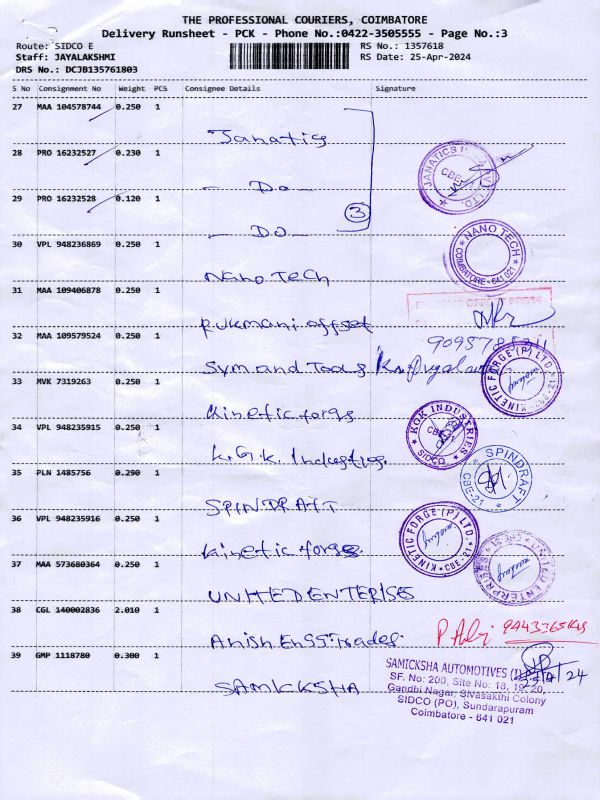 THE PROFESSIONAL COURIERS, COIMBATORE
Delivery Runsheet - PCK - Phone No.:0422-3505555 - Page No.:3
Route: SIDCO E
RS No.: 1357618
Staff: JAYALAKSHMI
RS Date: 25-Apr-2024
DRS No.: DCJB135761803
S No Consignment No Weight PCS Consignee Details Signature
27 MAA 104578744 0.250 1
Janatics
28 PRO 16232527 0.230 1
- Do -
JANATICS
CBE
29 PRO 16232528 0.120 1
3
- DO -
30 VPL 948236869 0.250 1
Nano Tech
NANO TECH
COIMBATORE - 641 021
31 MAA 109406878 0.250 1
Rukmani offset
32 MAA 109579524 0.250 1
Symand Tools
33 MVK 7319263 0.250 1
Kinetic forgs
KINETIC FORGE (P) LTD.
34 VPL 948235915 0.250 1
K.G.K. Industries.
KGK INDUSTRIES
CBE
SIDCO
35 PLN 1485756 0.290 1
SPINDRAFT
SPINDRAFT
CBE-21
36 VPL 948235916 0.250 1
Kinetic forgs
KINETIC FORGE (P) LTD.
CBE-21
37 MAA 573680364 0.250 1
UNITED ENTERISES
UNITED ENTERPRISES
38 CGL 140002836 2.010 1
Anish Engg Trades
39 GMP 1118780 0.300 1
SAMICKSHA
SAMICKSHA AUTOMOTIVES
SF. No: 200, Site No: 18, 19, 20,
Gandhi Nagar, Sivasakthi Colony
SIDCO (PO), Sundarapuram
Coimbatore - 641 021